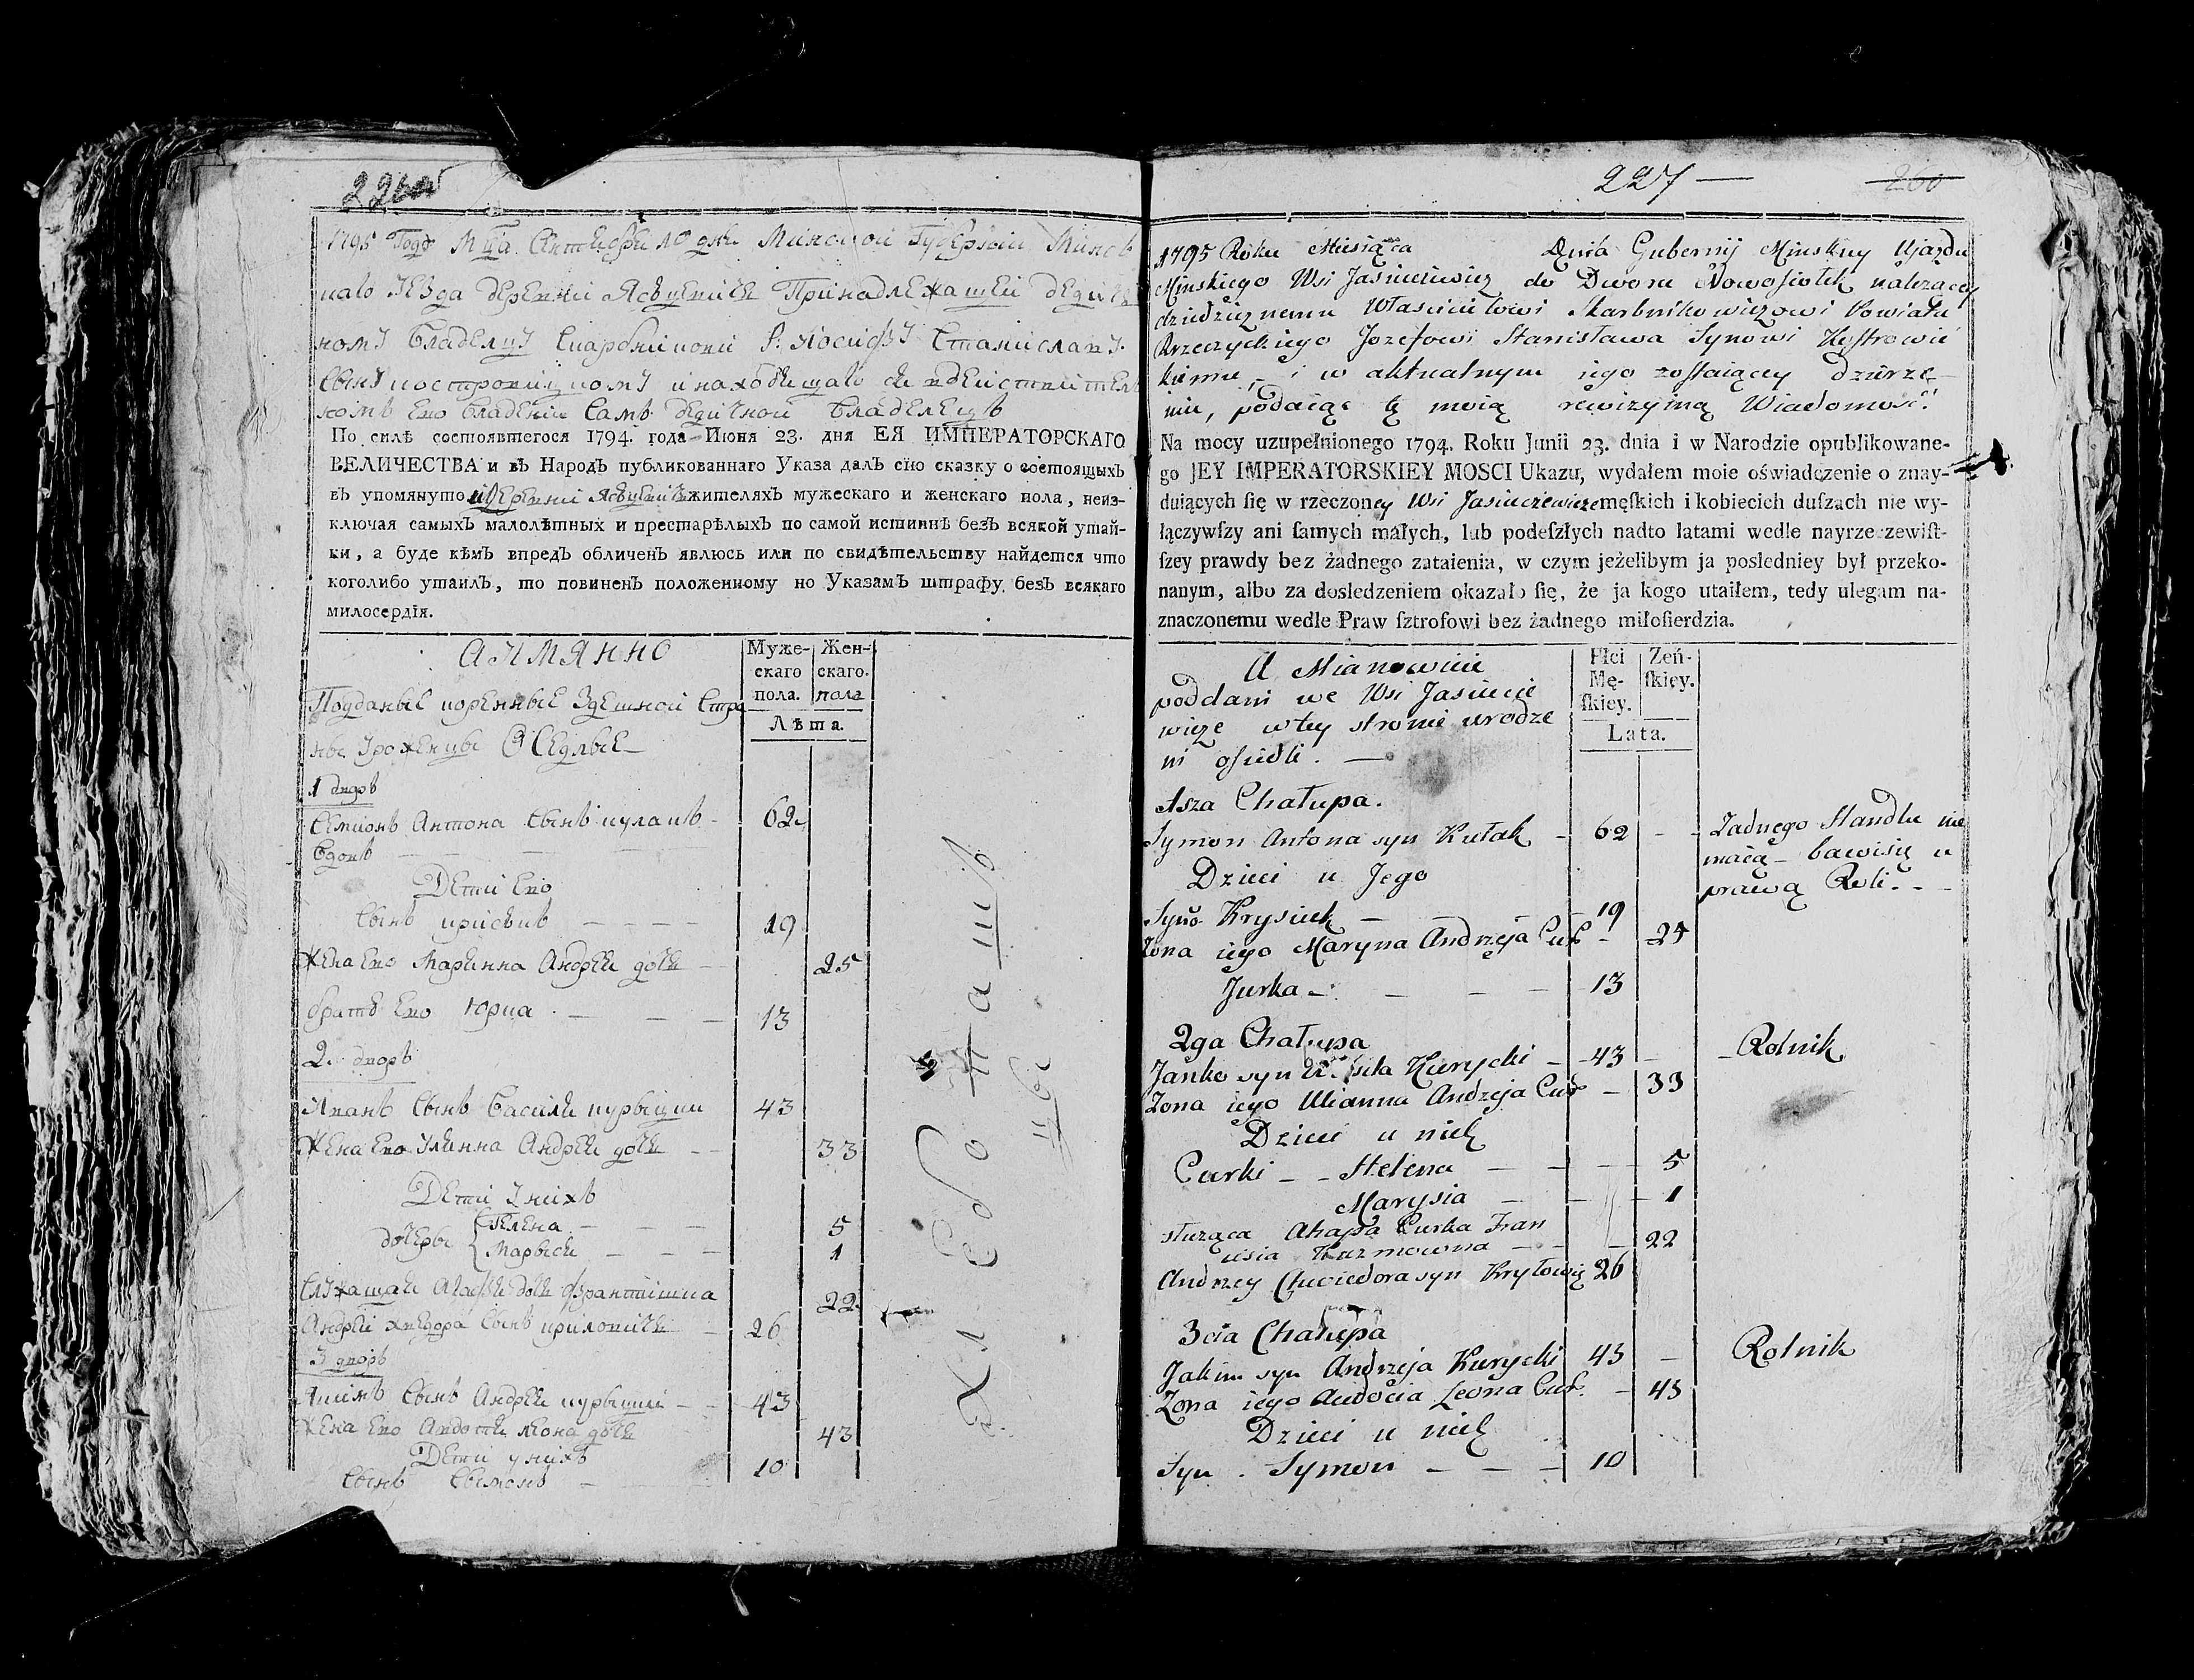 226об
1795 Года Мца Октября 10 дня Минской Губернии Минс
каго Уезда деревни Ясюцевичъ Принадлежащей дедич
ному Владелцу Скарбникови Р. Иосифу Станиславу
Сыну костровицкому и находящаго ся вдействител
номъ Его владении Самъ дедичной владелецъ
По силѣ состоявшегося 1794. года Июня 23. дня ЕЯ ИМПЕРАТОРСКАГО
ВЕЛИЧЕСТВА и въ Народъ публикованнаго Указа далъ сїю сказку о состоящыхъ
въ упомянуто деревни жителяхъ мужескаго и женскаго пола, неиз-
ключая самыхъ малолѣтных и престарѣлыхъ по самой истиннѣ безъ всякой утай-
ки, а буде кѣмъ впредъ обличенъ явлюсь или по свидѣтельству найдется что
коголибо утаилъ, то повиненъ положенному но Указамъ штрафу безъ всякаго
милосердїя.
Муже-скаго пола. Жен-скаго. пола
Лѣта.
аимянно
Подданые коренные Здешной Стра
ны Уроженцы Оседлые
1 дворъ
Семионъ Антона Сынъ кулакъ - 62
Вдовъ
Дети Его
Сынъ крисюкъ - 19
Жена Его Марьянна Андрея дочь - 25
братъ Его Юрка - 13
2. дворъ
Янанъ Сынъ Василя курыцки 43
Жена Его Улянна Андрея дочь - 33
Дети У нихъ
дочеры Гелена - 5
Марыся - 1
Служащая Агафя дочь францишка 22
Андрей хведора Сынъ криловичъ - 26
3 дворъ
Якимъ Сынъ Андрея курыцки - 43
Жена Его Авдотя леона дочь 43
Дети у нихъ
Сынъ Сымонъ - 10
227 — 260
1795 Roku Miesiąca Dnia Gubernij Minskiey Ujazdu
Minskiego Wsi Jasiuciewicz do Dworu Nowosiołek należącey
dziedzicznemu Własicielowi Skarbnikowiczowi Powiatu
Rzeczyckiego Jozefowi Stanisława Synowi Kostrowic
kiemu, i w aktualnym iego zostaiącey dzierze
niu, podaię tę moię rewizyiną Wiadomosć.
Na mocy uzupełnionego 1794. Roku Junii 23. dnia i w Narodzie opublikowane-
go JEY IMPERATORSKIEY MOSCI Ukazu, wydałem moie oświadczenie o znay-
duiących ſię w rzeczoney Wsi Jasiuczewicze męſkich i kobiecich duſzach nie wy-
łączywſzy ani ſamych małych, lub podeſzłych nadto latami wedle nayrzeczewiſt-
ſzey prawdy bez żadnego zataienia, w czym jeżelibym ja posledniey był przeko-
nanym, albo za dosledzeniem okazało ſię, że ja kogo utaiłem, tedy ulegam na-
znaczonemu wedle Praw ſztrofowi bez żadnego miłoſierdzia.
Płci Mę-ſkiey. Zeń-ſkiey.
Lata.
A Mianowicie
poddani we Wsi Jasiucie
wicze wtey stronie urodze
ni osiedli. —
1sza Chałupa.
Symon Antona syn Kułak - 62 - Żadnego Handlu nie
maią - bawisię u
prawą Roli. -
Dzieci u Jego
Syno Krysiuk - 19
Żona iego Maryna Andrzeja Cur - 25
Jurka - 13
2ga Chałupa
Janko syn Kurycki - 43 - Rolnik
Żona iego Ulianna Andzeja Cur - 33
Dzieci u nich
Curki - Helena - 5
Marysia - 1
służąca Ahapa Curka Fran
ciszka - 22
Andrzey Chwiedora syn Kryłowicz 26
3cia Chałupa
Jakim syn Andrzeja Kurycki 43 - Rolnik
Żona iego Audocia Leona Cur. - 43
Dzieci u nich
Syn - Symon - 10